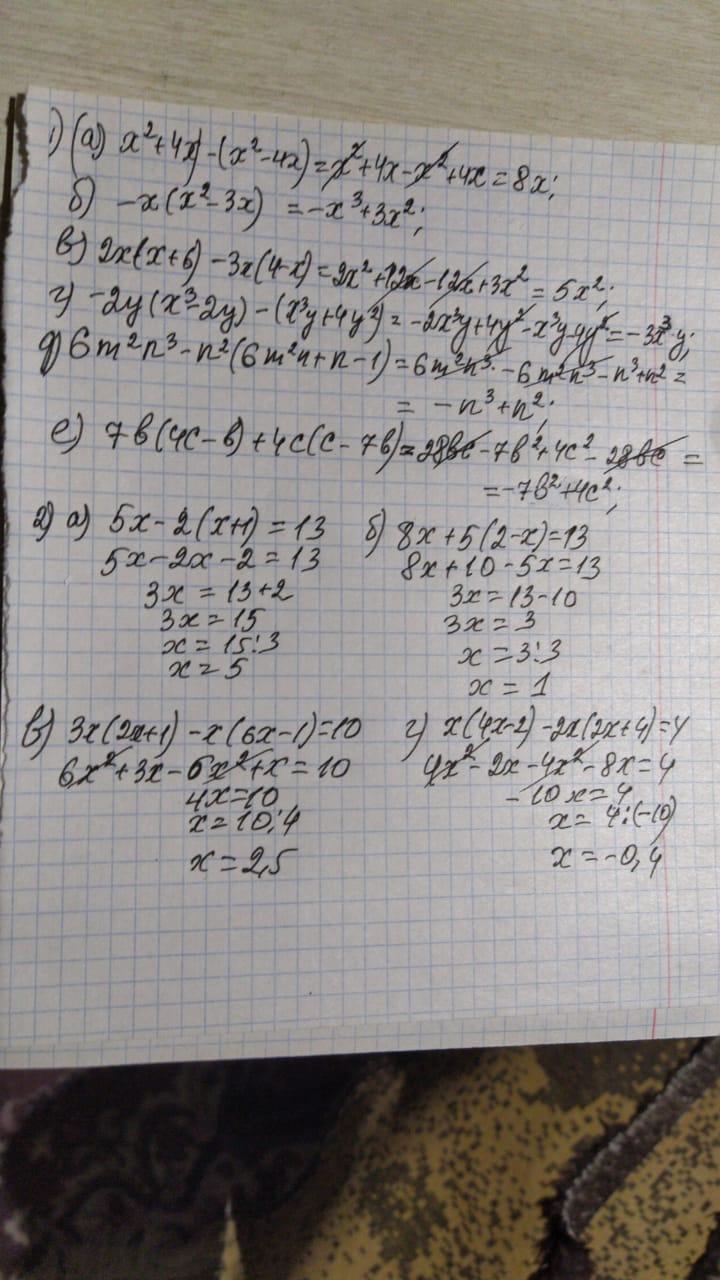 1) (а) x²+4x) -(x²-4x)=x²+4x-x²+4x=8x;
б) -x(x²-3x) =-x³+3x²;
в) 2x(x+6) -3x(4-x)=2x²+12x-12x+3x²=5x²;
г) -2y(x³-2y)-(x³y+4y²)=-2x³y+4y²-x³y-4y²=-3x³y;
д) 6m²n³-n²(6m²n+n-1)=6m²n³-6m²n³-n³+n²=
=-n³+n²;
е) 7b(4c-b)+4c(c-7b)=28bc-7b²+4c²-28bc=
=-7b²+4c²;
2) а) 5x-2(x+1)=13
5x-2x-2=13
3x=13+2
3x=15
x=15:3
x=5
б) 8x+5(2-x)=13
8x+10-5x=13
3x=13-10
3x=3
x=3:3
x=1
в) 3x(2x+1)-x(6x-1)=10
6x²+3x-6x²+x=10
4x=10
x=10:4
x=2,5
г) x(4x-2)-2x(2x+4)=4
4x²-2x-4x²-8x=4
-10x=4
x=4:(-10)
x=-0,4